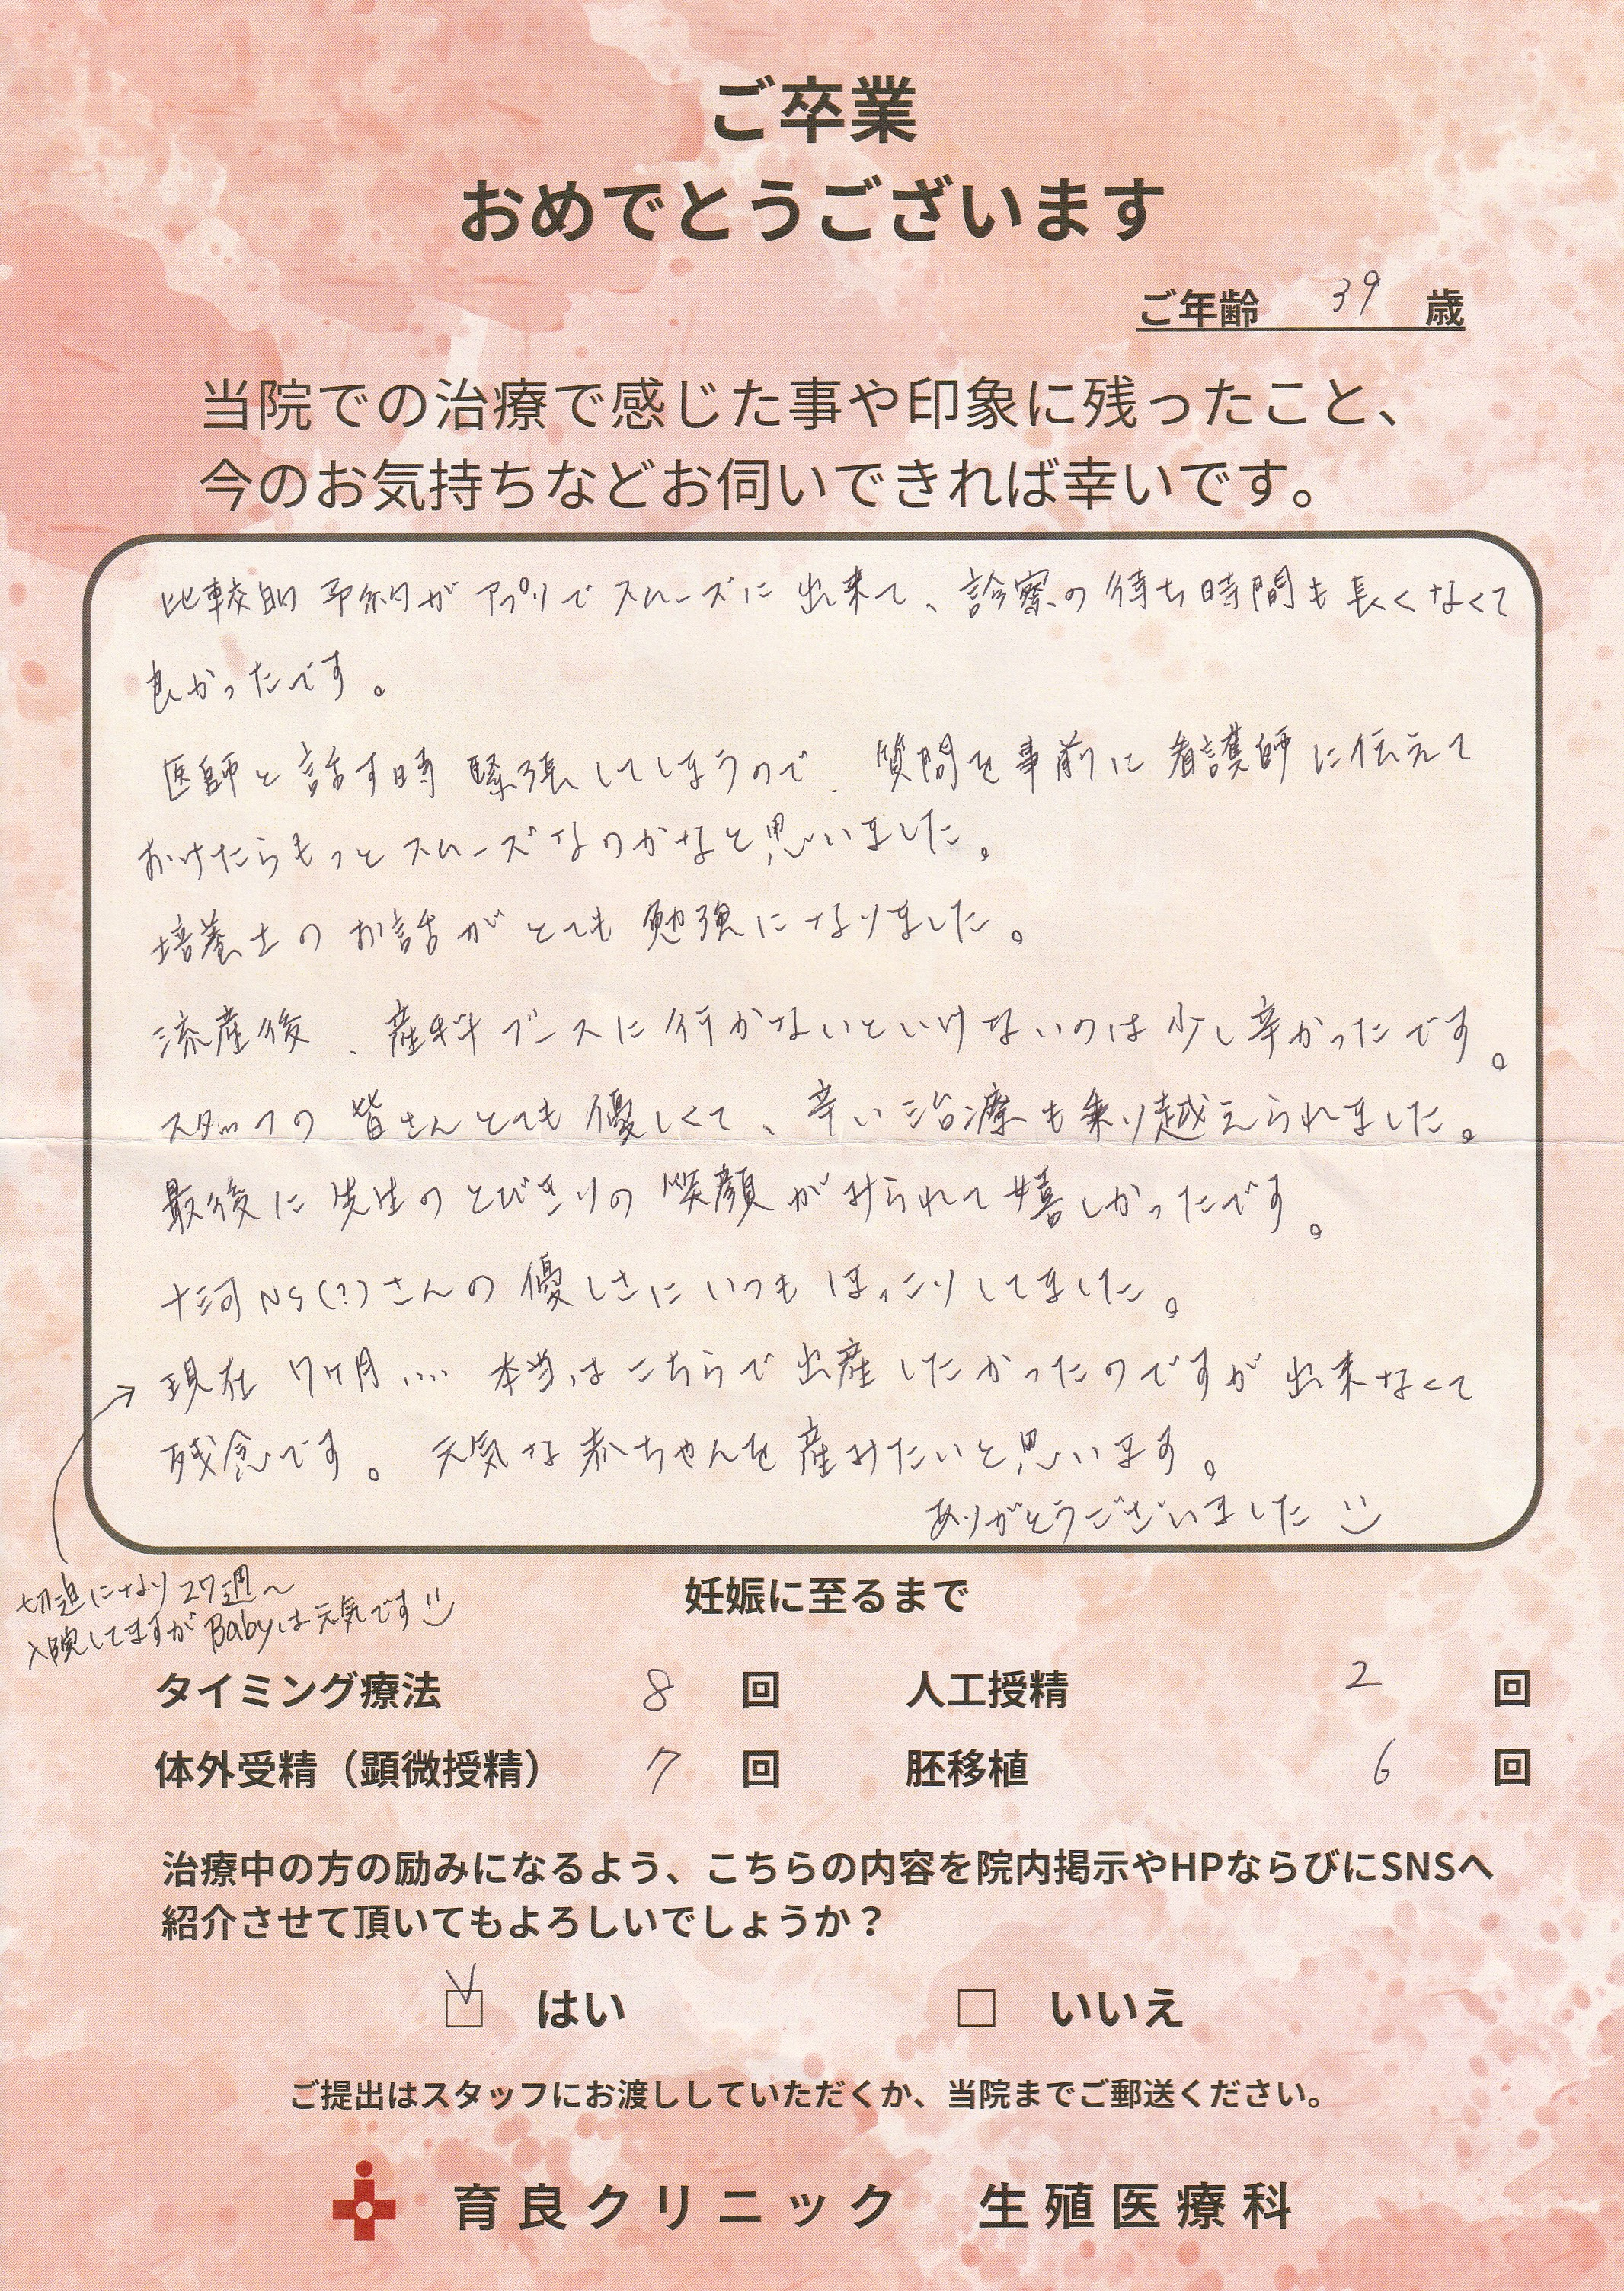 ご卒業
おめでとうございます
ご年齢 39 歳
当院での治療で感じた事や印象に残ったこと、
今のお気持ちなどお伺いできれば幸いです。
比較的 予約が アプリで スムーズに 出来て、診察の 待ち時間も 長くなくて
良かったです。
医師と 話す時 緊張してしまうので、質問を事前に 看護師に伝えて
おけたらもっと スムーズなのかなと思いました。
培養士の お話が とても 勉強になりました。
流産後、産科ブースに 行かないといけないのは 少し辛かったです。
スタッフの 皆さんとても 優しくて、辛い治療も乗り越えられました。
最後に 先生の とびきりの 笑顔が みられて 嬉しかったです。
十河 NS(?)さんの 優しさに いつも ほっこりしてました。
→ 現在 7ヶ月.... 本当はこちらで 出産したかったのですが 出来なくて
残念です。 元気な 赤ちゃんを 産みたいと思います。
ありがとうございました
切迫になり 27週〜
入院してますが Babyは元気です
妊娠に至るまで
タイミング療法 8 回 人工授精 2 回
体外受精（顕微授精） 7 回 胚移植 6 回
治療中の方の励みになるよう、こちらの内容を院内掲示やHPならびにSNSへ
紹介させて頂いてもよろしいでしょうか？
☑ はい □ いいえ
ご提出はスタッフにお渡ししていただくか、当院までご郵送ください。
育良クリニック 生殖医療科